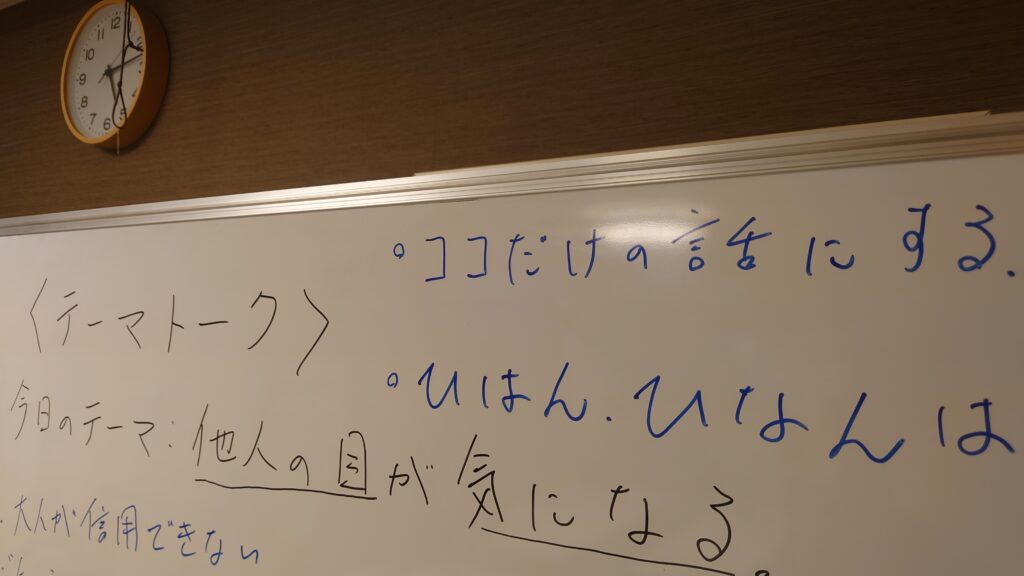 12
11
10
9
8
7
6
5
〈テーマトーク〉
今日のテーマ:他人の目が気になる
・大人が信用できない
○ココだけの話にする.
○ひはん.ひなんは